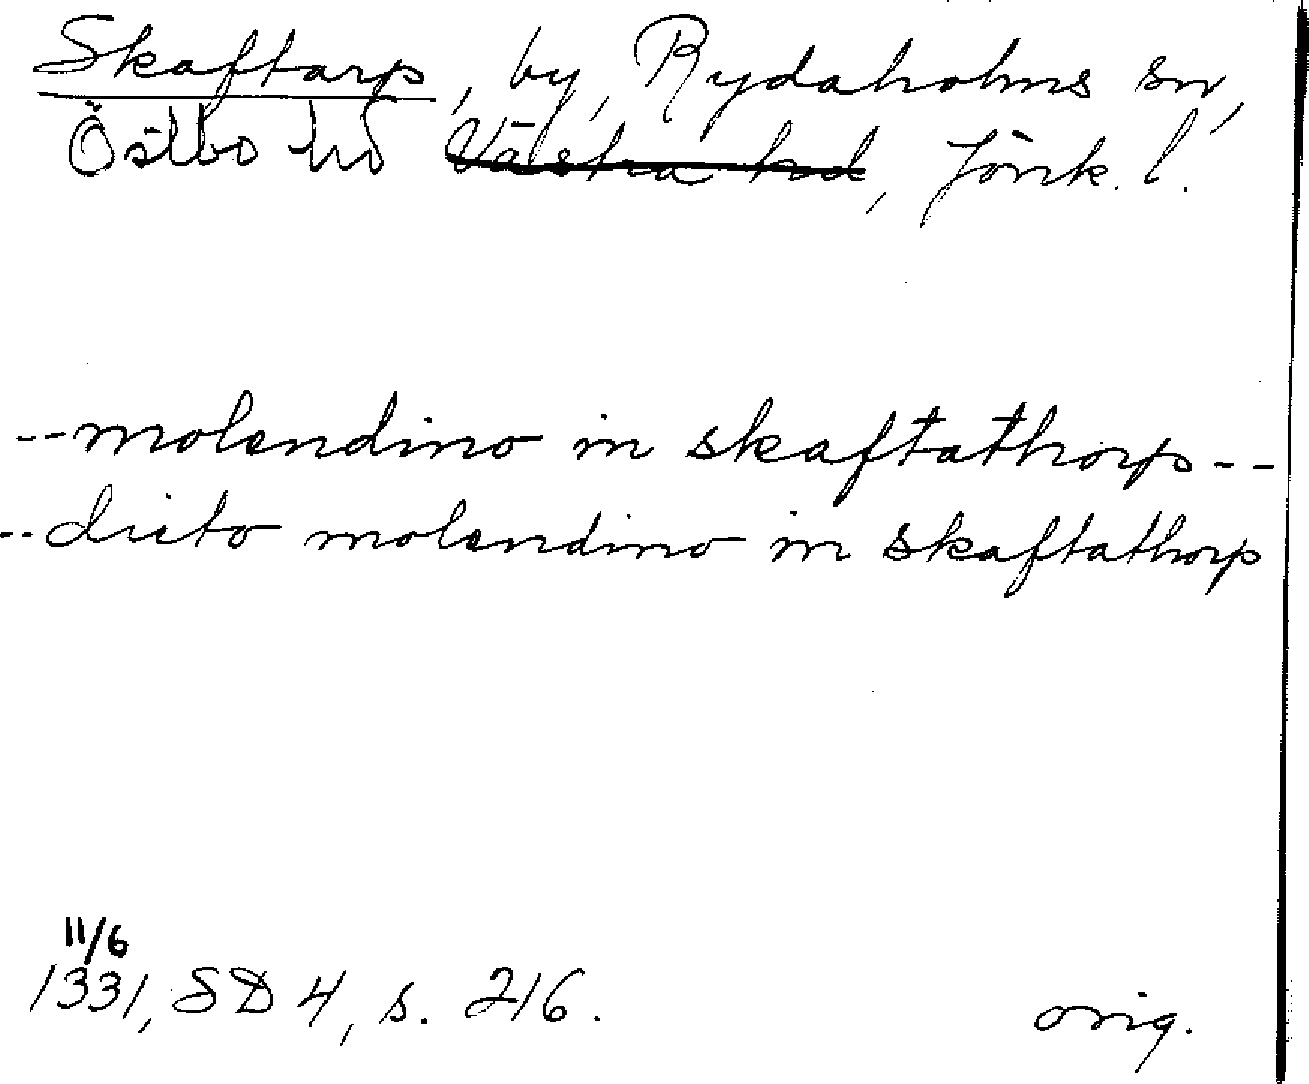 Skaftarp, by, Rydaholms sn,
Östbo hd Västra hd, Jönk. l.
--molendino in skaftathorp--
--dicto molendino in skaftathorp
11/6
1331, SD 4, s. 216.
orig.